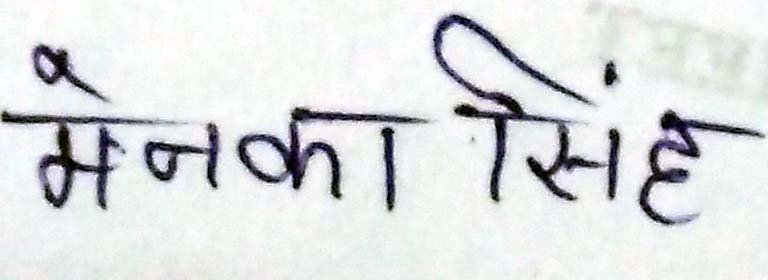 मेनका सिंह